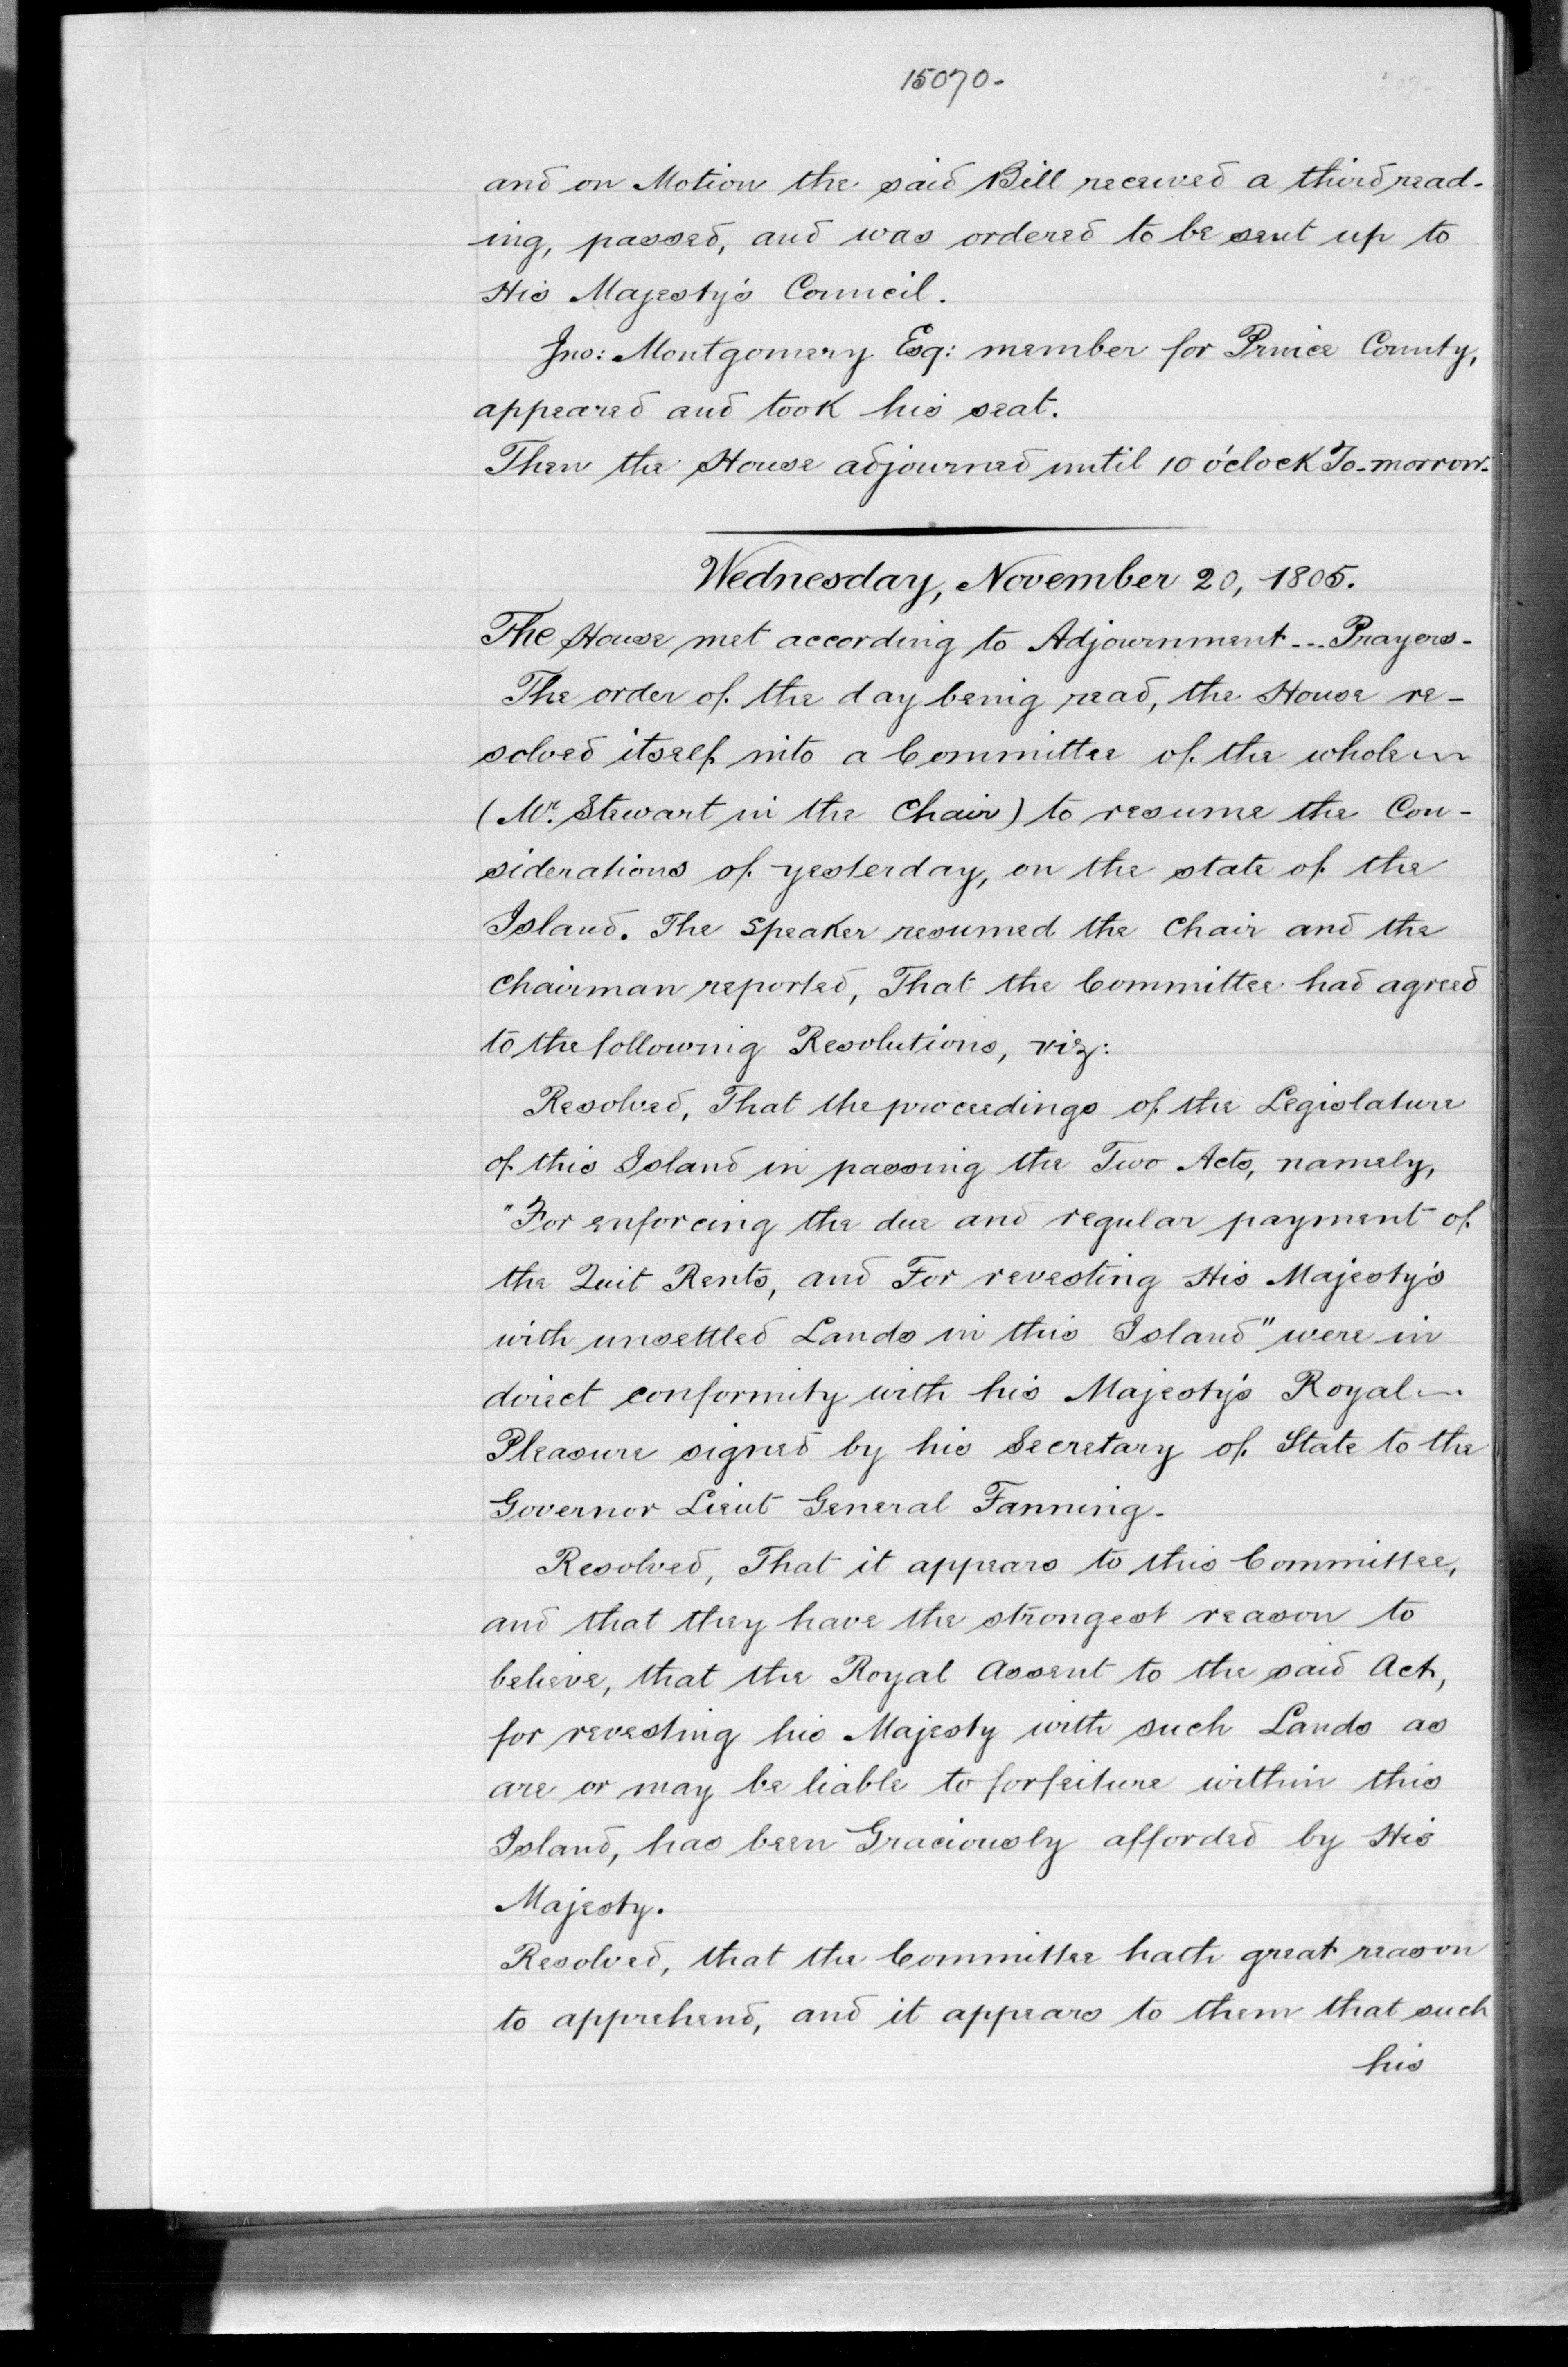 15070-
and on Motion the said Bill received a third read-
ing, passed, and was ordered to be sent up to
His Majesty's Council.
Jno: Montgomery Esq: member for Prince County,
appeared and took his seat.
Then the House adjourned until 10 o'clock To-morrow.
Wednesday, November 20, 1805.
The House met according to Adjournment... Prayers-
The order of the day being read, the House re-
solved itself into a Committee of the whole
(Mr. Stewart in the Chair) to resume the Con-
siderations of yesterday, on the state of the
Island. The Speaker resumed the Chair and the
Chairman reported, That the Committee had agreed
to the following Resolutions, viz:
Resolved, That the proceedings of the Legislature
of this Island in passing the Two Acts, namely,
"For enforcing the due and regular payment of
the Quit Rents, and For revesting His Majesty's
with unsettled Lands in this Island" were in
direct conformity with his Majesty's Royal
Pleasure signed by his Secretary of State to the
Governor Lieut General Fanning-
Resolved, That it appears to this Committee,
and that they have the strongest reason to
believe, that the Royal Assent to the said Act,
for revesting his Majesty with such Lands as
are or may be liable to forfeiture within this
Island, has been Graciously afforded by His
Majesty.
Resolved, that the Committee hath great reason
to apprehend, and it appears to them that such
his